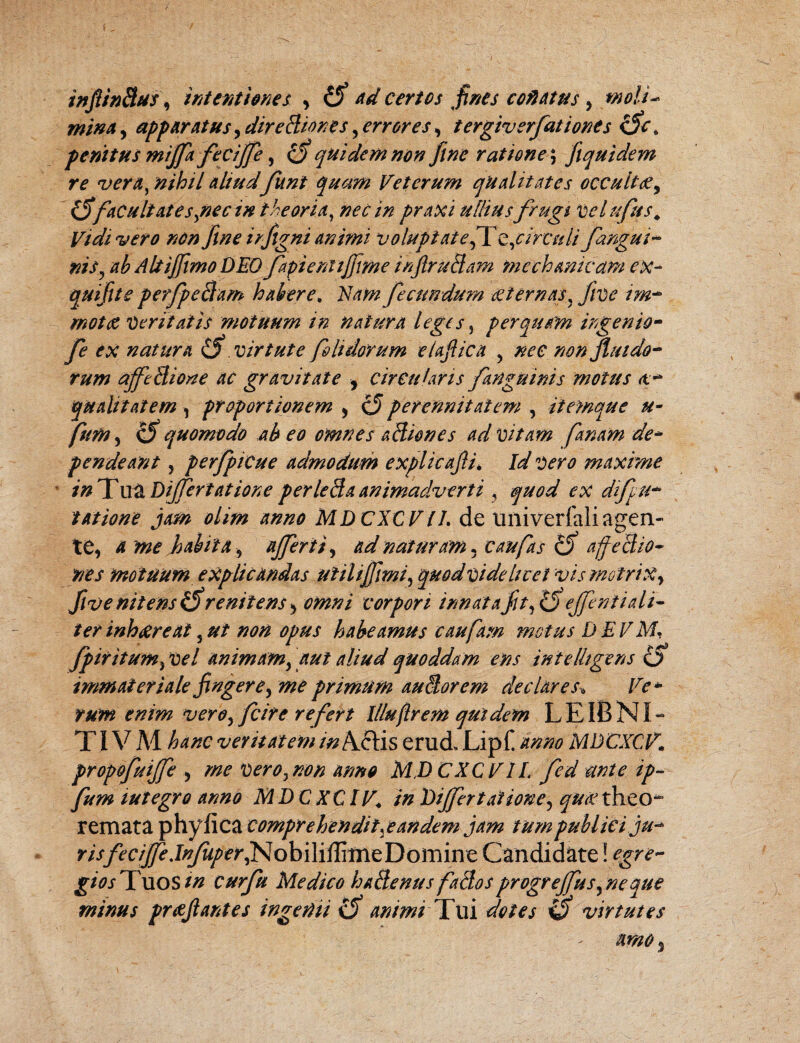 inſtinctus, intentiones, & ad certos fines conatus, moli-
mina, apparatus, directiones, errores, tergiverſationes &c.
penitus miſſa feciſſe, & quidem non ſine ratione; ſiquidem
re vera, nihil aliud ſunt quam Veterum qualitates occultæ,
& facultates, nec in theoria, nec in praxi ullius frugi vel uſus.
Vidi vero non ſine inſigni animi voluptate, Te, circuli ſangui-
nis, ab Altiſſimo DEO ſapientiſſime inſtructam mechanicam ex-
quiſite perſpectam habere. Nam ſecundum æternas, ſive im-
motæ veritatis motuum in natura leges, perquam ingenio-
ſe ex natura & virtute ſolidorum elaſtica, nec non fluido-
rum affectione ac gravitate, circularis ſanguinis motus æ-
qualitatem, proportionem, & perennitatem, itemque u-
ſum, & quomodo ab eo omnes actiones ad vitam ſanam de-
pendeant, perſpicue admodum explicaſti. Id vero maxime
in Tua Diſſertatione perlecta animadverti, quod ex diſpu-
tatione jam olim anno MDCXCVII. de univerſali agen-
te, a me habita, aſſerti, ad naturam, cauſas & affectio-
nes motuum explicandas utiliſſimi, quod videlicet vis motrix,
ſive nitens & renitens, omni corpori innata ſit, & eſſentiali-
ter inhæreat, ut non opus habeamus cauſam motus DEVM,
ſpiritum, vel animam, aut aliud quoddam ens intelligens &
immateriale fingere, me primum auctorem declares. Ve-
rum enim vero, ſcire refert Illuſtrem quidem LEIBNI-
TIVM hanc veritatem in Actis erud. Lipſ. anno MDCXCV.
propoſuiſſe, me vero, non anno MDCXCVII. ſed ante ip-
ſum integro anno MDCXCIV. in Diſſertatione, quæ theo-
remata phyſica comprehendit, eandem jam tum publici ju-
ris feciſſe. Inſuper, Nobiliſſime Domine Candidate! egre-
gios Tuos in curſu Medico hactenus factos progreſſus, neque
minus præſtantes ingenii & animi Tui dotes & virtutes
amo,